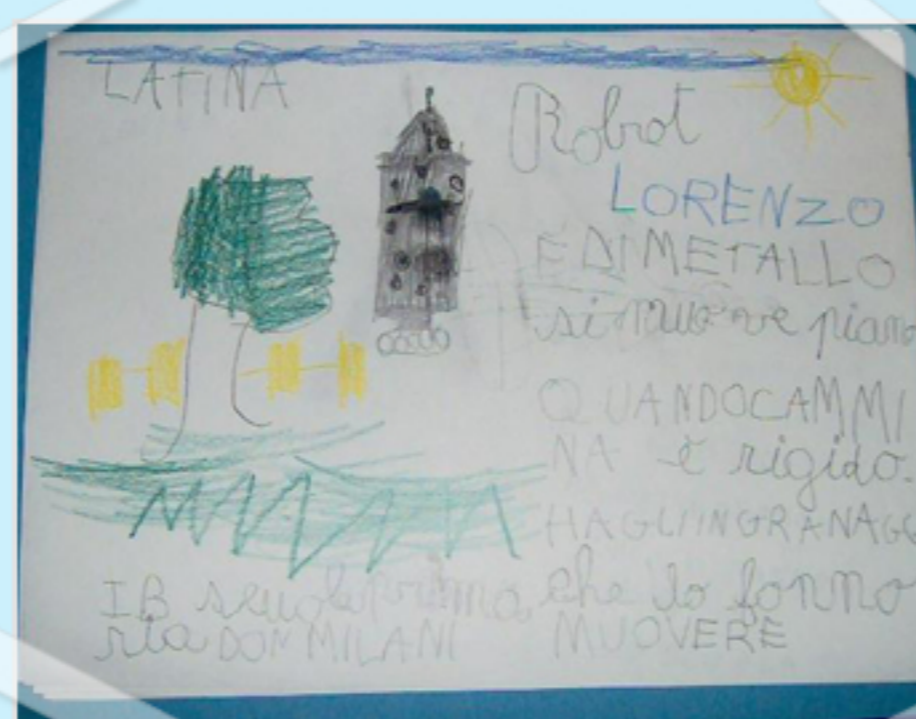 LATINA
Robot
LORENZO
È DI METALLO
si muove piano
QUANDO CAMMI
NA è rigido.
HA GLI INGRANAGG
che lo fanno
MUOVERE
IB scuola prima
ria DON MILANI